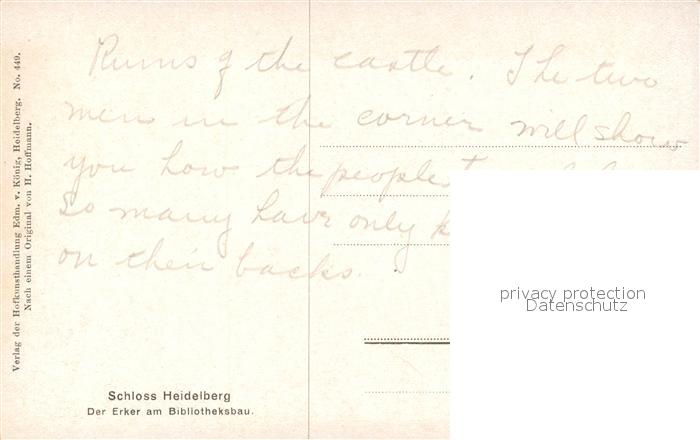 Ruins of the castle. The two
men in the corner will show
you how the people
So many have only k
on their backs.
Verlag der Hofkunsthandlung Edm. v. König, Heidelberg. No. 449.
Nach einem Original von H. Hoffmann.
privacy protection
Datenschutz
Schloss Heidelberg
Der Erker am Bibliotheksbau.